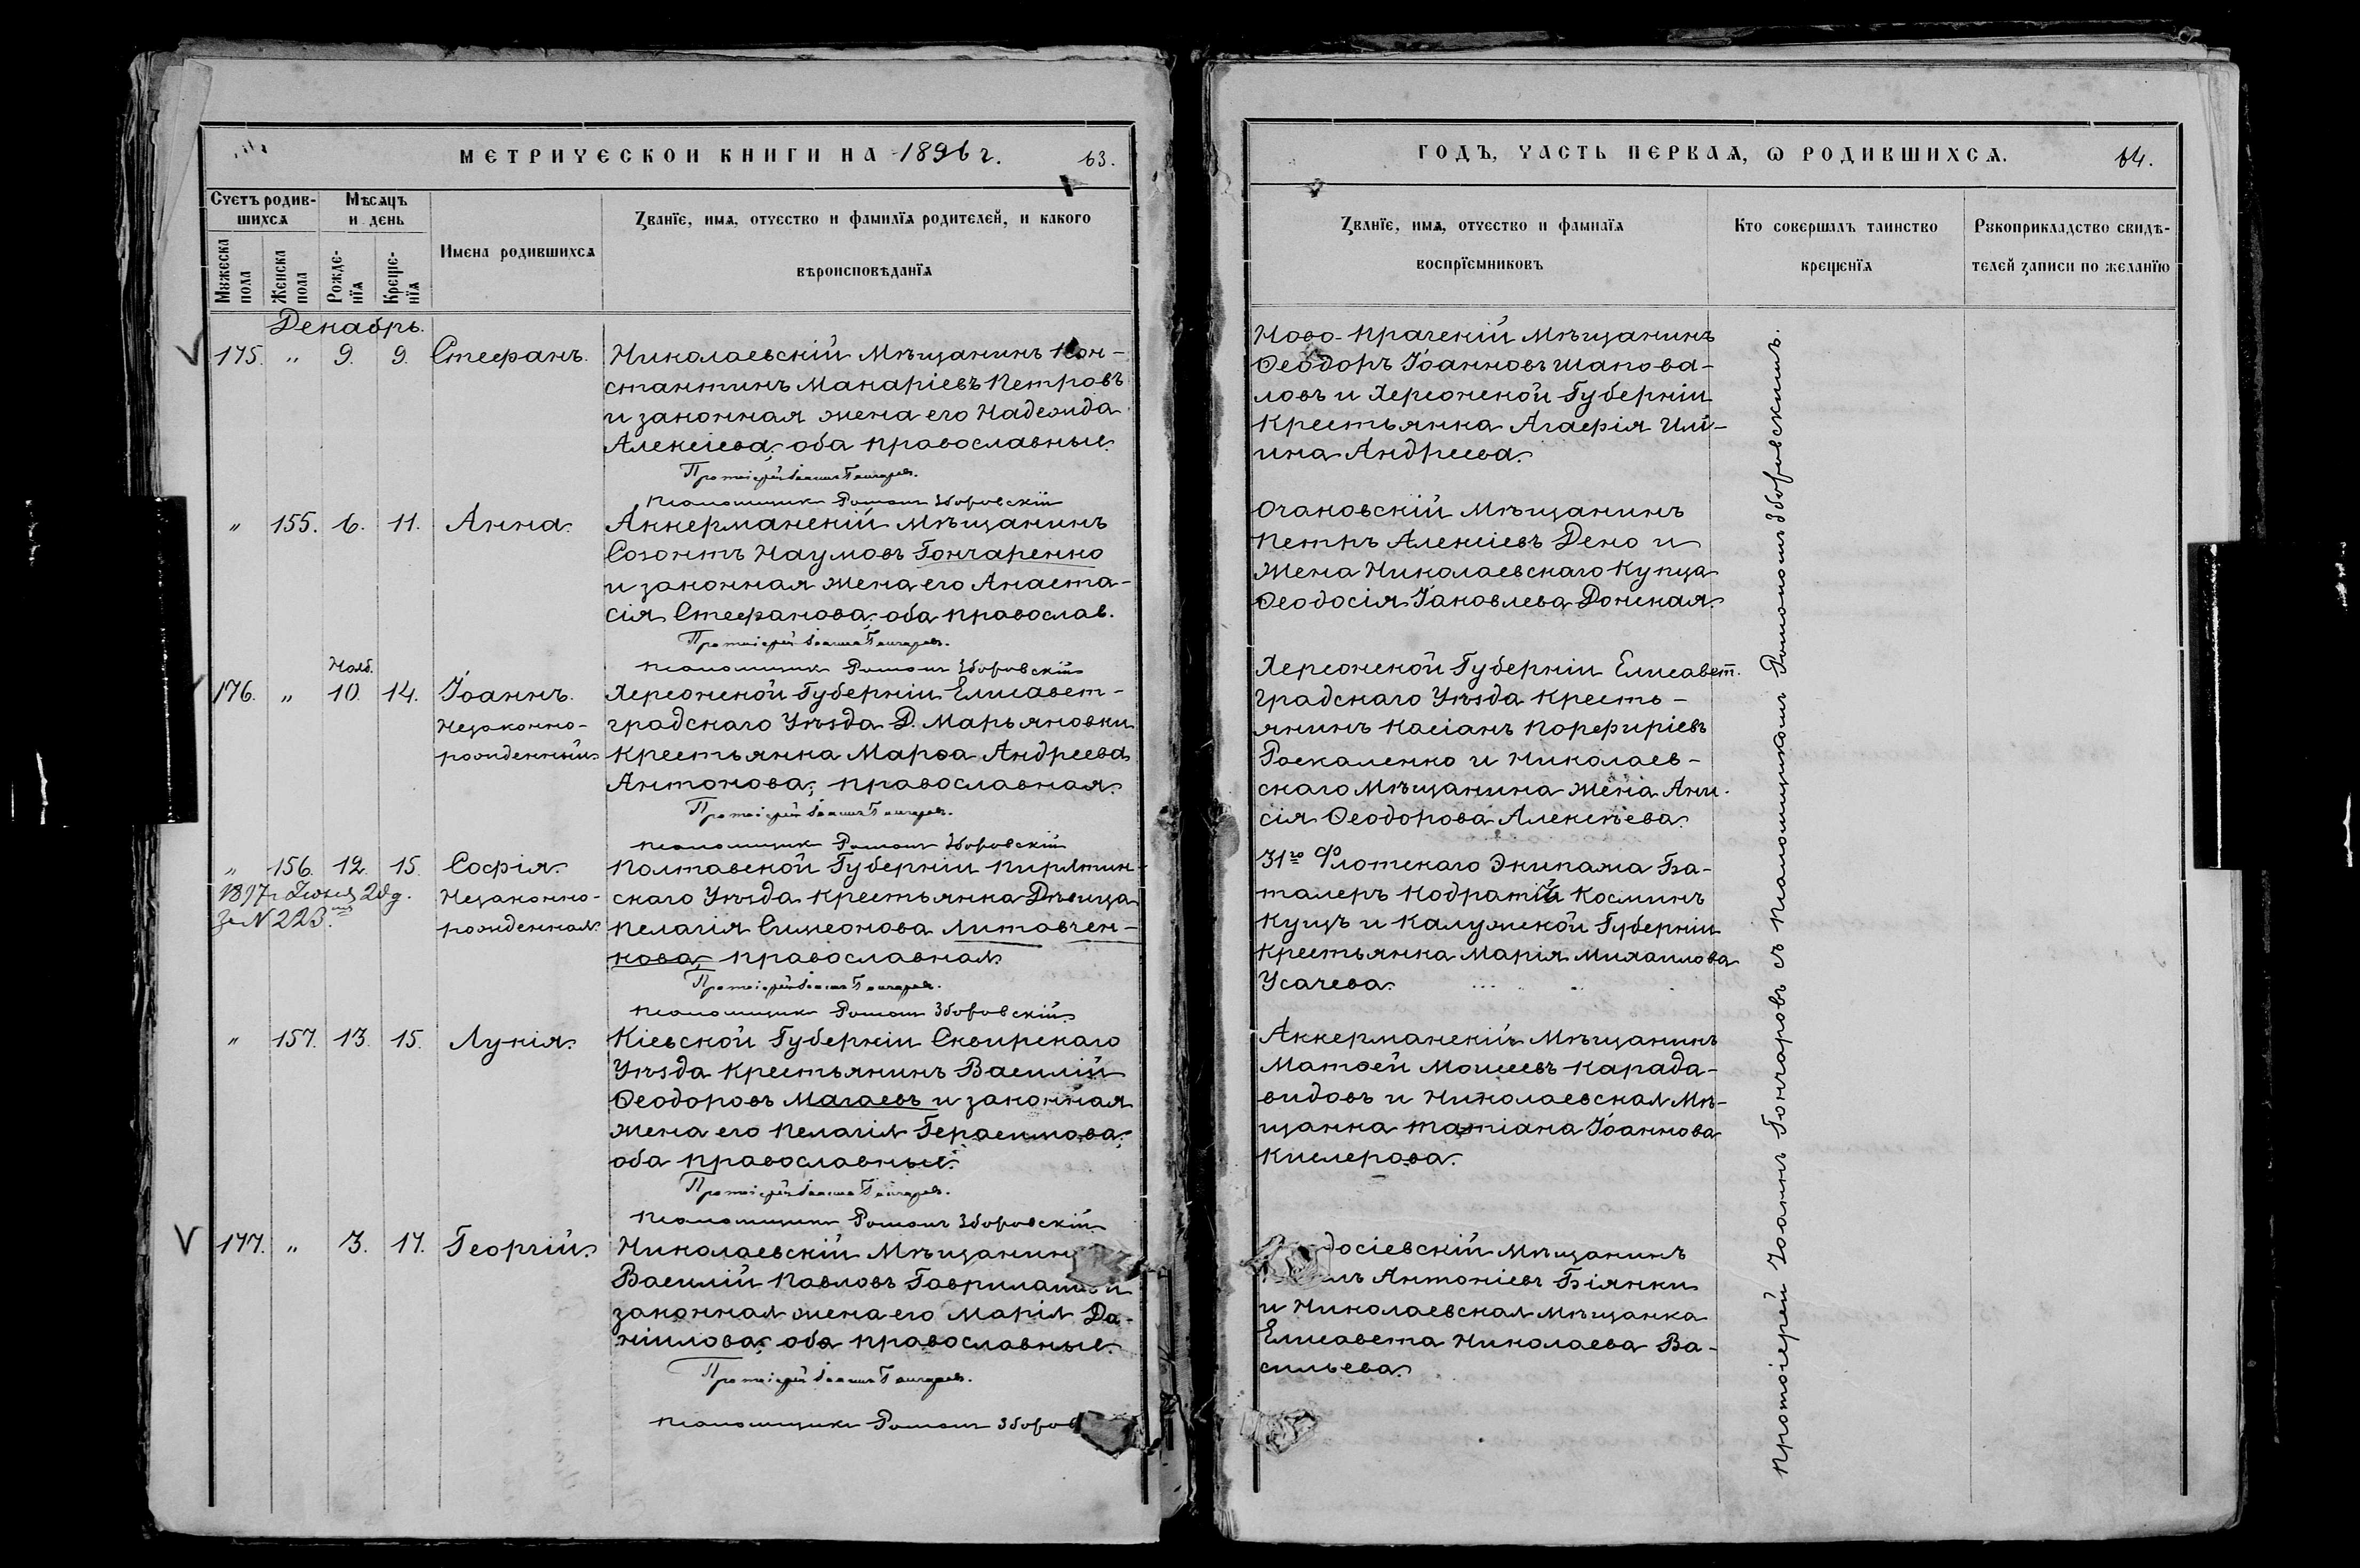 МЕТРИЧЕСКОИ КНИГИ НА 1896 г. 63.
Счетъ родив-
шихся
Мѣсяцъ
и день
Мужеска
пола
Женска
пола
Рожде-
нїя
Креще-
нїя
Имена родившихся
Званїе, имя, отчество и фамилїя родителей, и какого
вѣроисповѣданїя
Декабрь.
175. " 9. 9. Стефанъ. Николаевскій Мѣщанинъ Кон-
стантинъ Макаріевъ Петровъ
и законная жена его Надежда
Алексіева; оба православные.
Протоіерей Іоаннъ Гончаровъ.
Псаломщикъ Романъ Зборовскій
" 155. 6. 11. Анна. Аккерманскій Мѣщанинъ
Созонтъ Наумовъ Гончаренко
и законная жена его Анаста-
сія Стефанова; оба православ.
Протоіерей Іоаннъ Гончаровъ.
Псаломщикъ Романъ Зборовскій
Нояб.
176. " 10. 14. Іоаннъ. Херсонской Губерніи Елисавет-
Незаконно- градскаго Уѣзда Д. Марьяновки
рожденный. Крестьянка Марѳа Андреева
Антонова; православная.
Протоіерей Іоаннъ Гончаровъ.
Псаломщикъ Романъ Зборовскій
" 156. 12. 15. Софія. Полтавской Губерніи Пирятин-
1897 г. 28 д. Незаконно- скаго Уѣзда Крестьянка Дѣвица
За N 223. рожденная. Пелагія Симеонова Литовчен-
кова; православная
Протоіерей Іоаннъ Гончаровъ.
Псаломщикъ Романъ Зборовскій
" 157. 13. 15. Лукія. Кіевской Губерніи Сквирскаго
Уѣзда Крестьянинъ Василій
Ѳеодоровъ Магаевъ и законная
жена его Пелагія Герасимова;
оба православные.
Протоіерей Іоаннъ Гончаровъ.
Псаломщикъ Романъ Зборовскій
V 177. " 3. 17. Георгій. Николаевскій Мѣщанин
Василій Павловъ и
законная жена его Марія Да-
ніилова; оба православные.
Протоіерей Іоаннъ Гончаровъ.
Псаломщикъ Романъ Зборов
ГОДЪ, ЧАСТЬ ПЕРВАЯ, Ѡ РОДИВШИХСЯ. 64.
Званїе, имя, отчество и фамилїя
воспрїемниковъ
Кто совершалъ таинство
крещенїя
Рукоприкладство свидѣ-
телей записи по желанїю
Ново-Прагскій Мѣщанинъ
Ѳеодоръ Іоанновъ Шапова-
ловъ и Херсонской Губерніи
Крестьянка Агафія Иліи-
ина Андреева.
Очаковскій Мѣщанинъ
Петръ Алексіевъ Дено и
Жена Николаевскаго Купца
Ѳеодосія Іаковлева Донская.
Херсонской Губерніи Елисавет.
градскаго Уѣзда Кресть-
янинъ Касіанъ Порфиріевъ
Роскаленко и Николаев-
скаго Мѣщанина жена Ани-
сія Ѳеодорова Алексѣева.
31го Флотскаго Экипажа Ба-
талеръ Кодратій Косминъ
Куцъ и Калужской Губерніи
Крестьянка Марія Михаилова
Усачева.
Аккерманскій Мѣщанинъ
Матѳей Моисеевъ Карада-
видовъ и Николаевская Мѣ-
щанка Татіана Іоаннова
Кислерова.
досіевскій Мѣщанинъ
Антоніевъ Біянки
и Николаевская Мѣщанка
Елисавета Николаева Ва-
сильева.
Протоіерей Іоаннъ Гончаровъ съ Псаломщикомъ Романомъ Зборовскимъ.